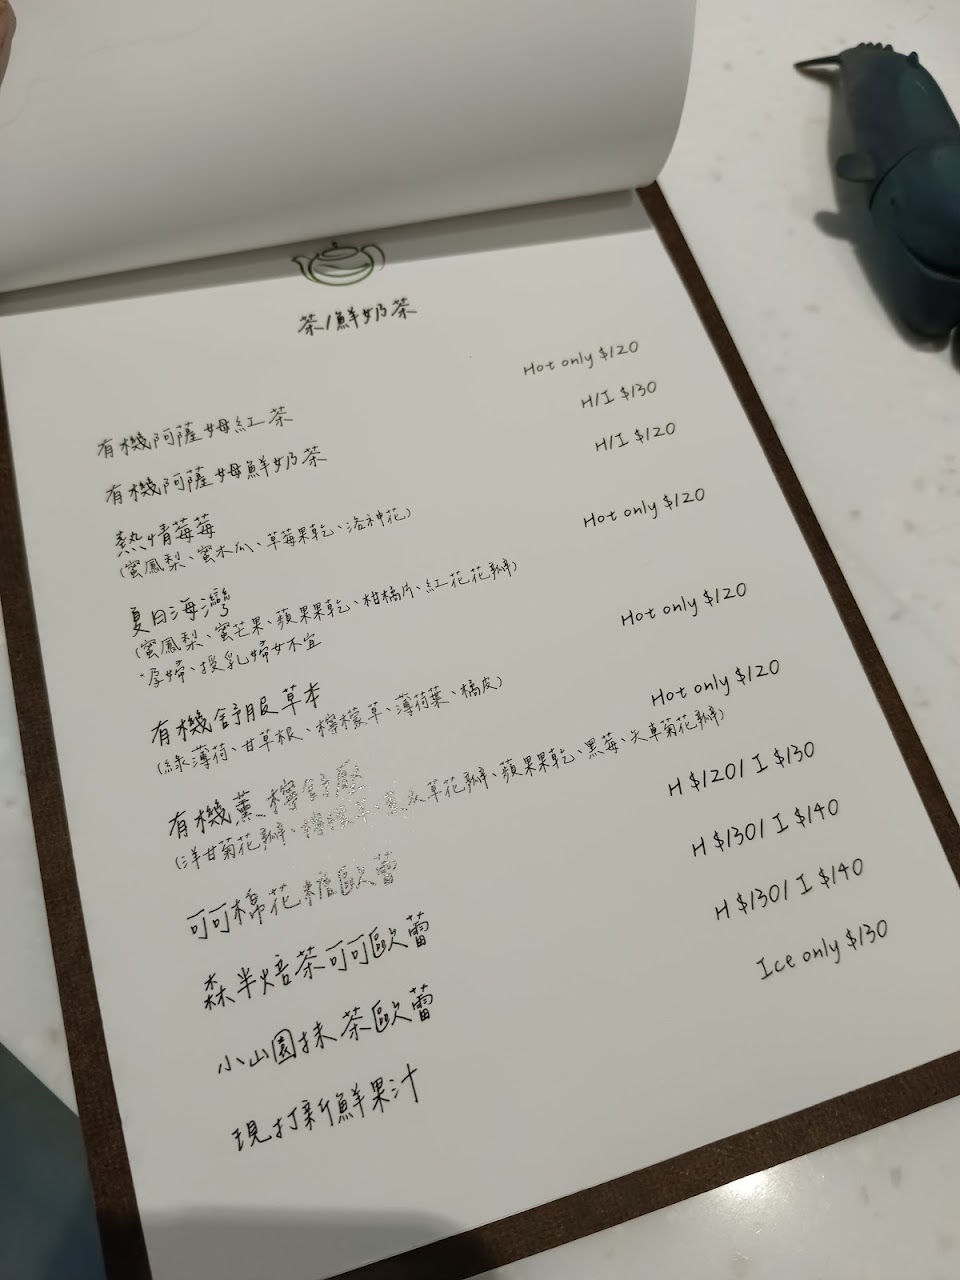 茶/鮮奶茶
有機阿薩姆紅茶 Hot only $120
有機阿薩姆鮮奶茶 H/I $130
熱情莓莓 H/I $120
(蜜鳳梨、蜜木瓜、草莓果乾、洛神花)
夏日海灣 Hot only $120
(蜜鳳梨、蜜芒果、蘋果果乾、柑橘片、紅花花瓣)
*孕婦、授乳婦女不宜
有機舒服草本 Hot only $120
(綠薄荷、甘草根、檸檬草、薄荷葉、橘皮)
有機薰檸舒壓 Hot only $120
(洋甘菊花瓣、檸檬草、薰衣草花瓣、蘋果果乾、黑莓、矢車菊花瓣)
可可棉花糖歐蕾 H $120/ I $130
森半焙茶可可歐蕾 H $130/ I $140
小山園抹茶歐蕾 H $130/ I $140
現打新鮮果汁 Ice only $130